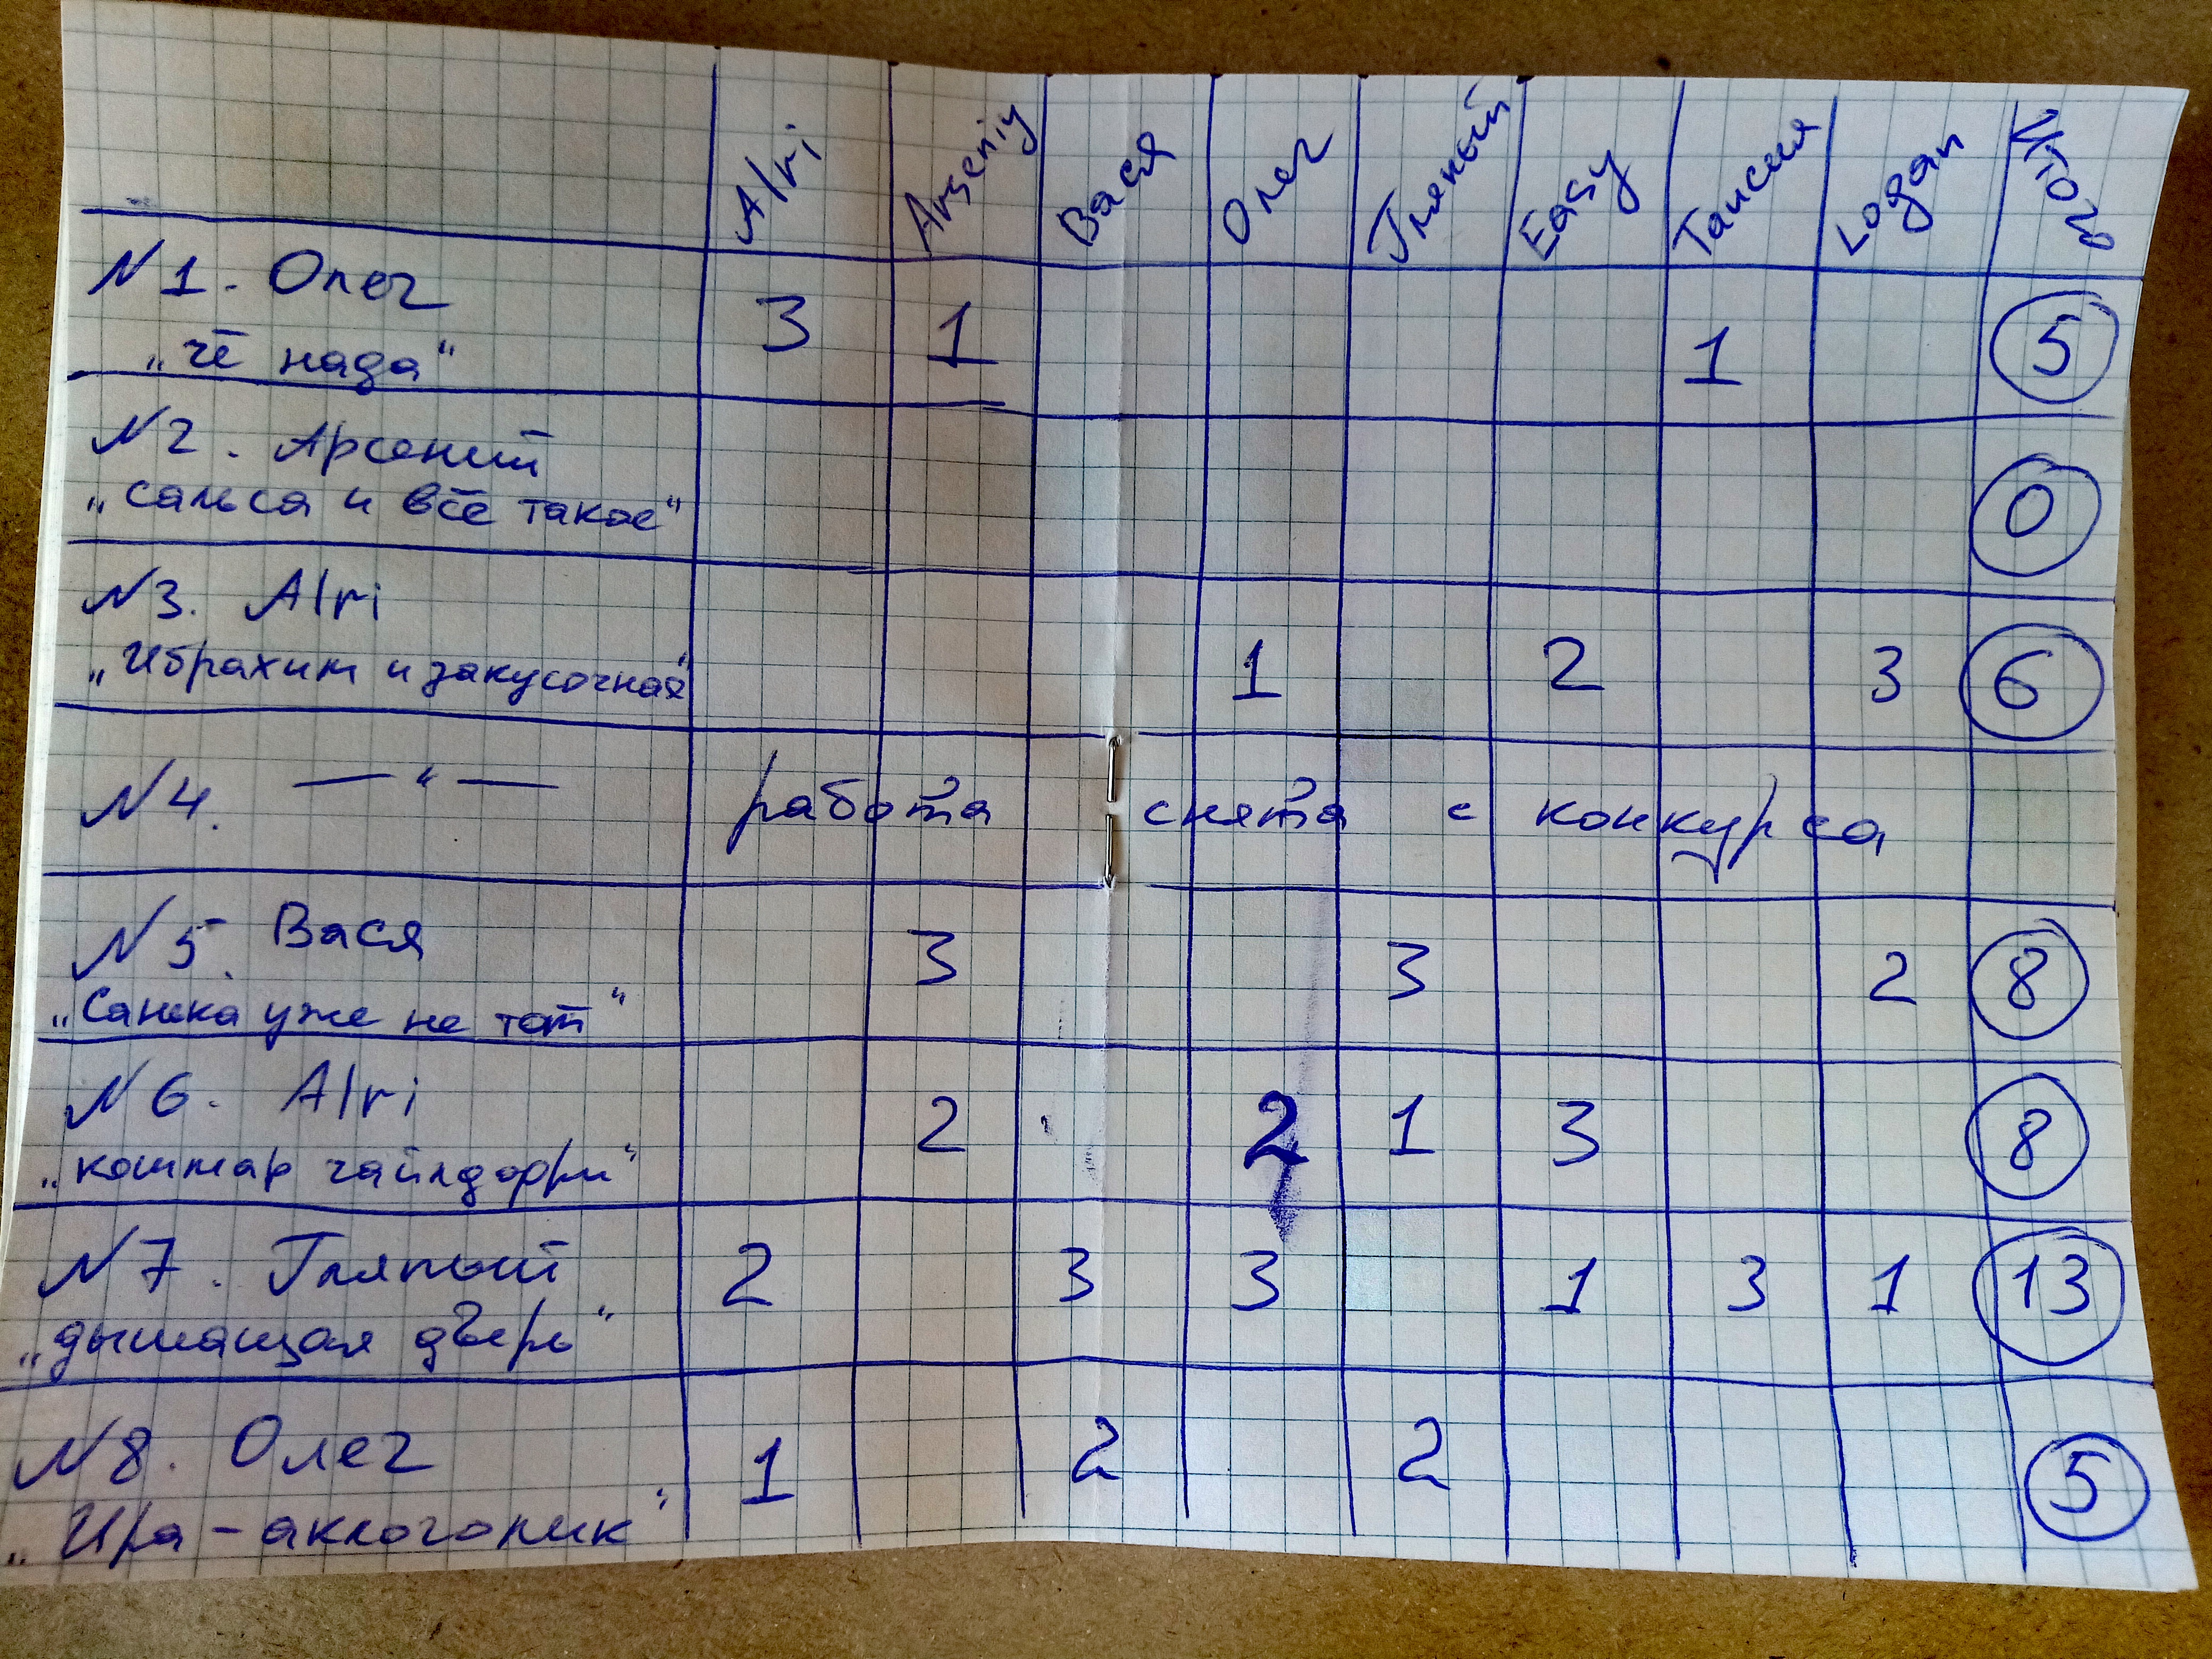 Alri Arseniy Вася Олег Гляпый Easy Таисия Logan Итог
N1. Олег 3 1 1 5
„чё нада“
N2. Арсений
„сальса и всё такое“ 0
N3. Alri
„Ибрахим и закусочная“ 1 2 3 6
N4. —“— работа снята с конкурса
N5. Вася 3 3 2 8
„Санька уже не тот“
N6. Alri 2 2 1 3 8
„кошмар чайлдфри“
N7. Гляпый 2 3 3 1 3 1 13
„дышащая дверь“
N8. Олег 1 2 2 5
„Ира - аклоголик“